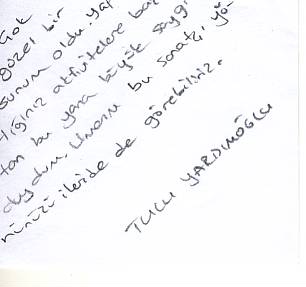 Çok
güzel bir
sunum oldu. Yap
tığınız aktivitelere baş
tan bu yana büyük saygı
duydum. Umarım bu sanatçı yö
nünüzü ileride de görebiliriz.
TULU YARDIMOĞLU